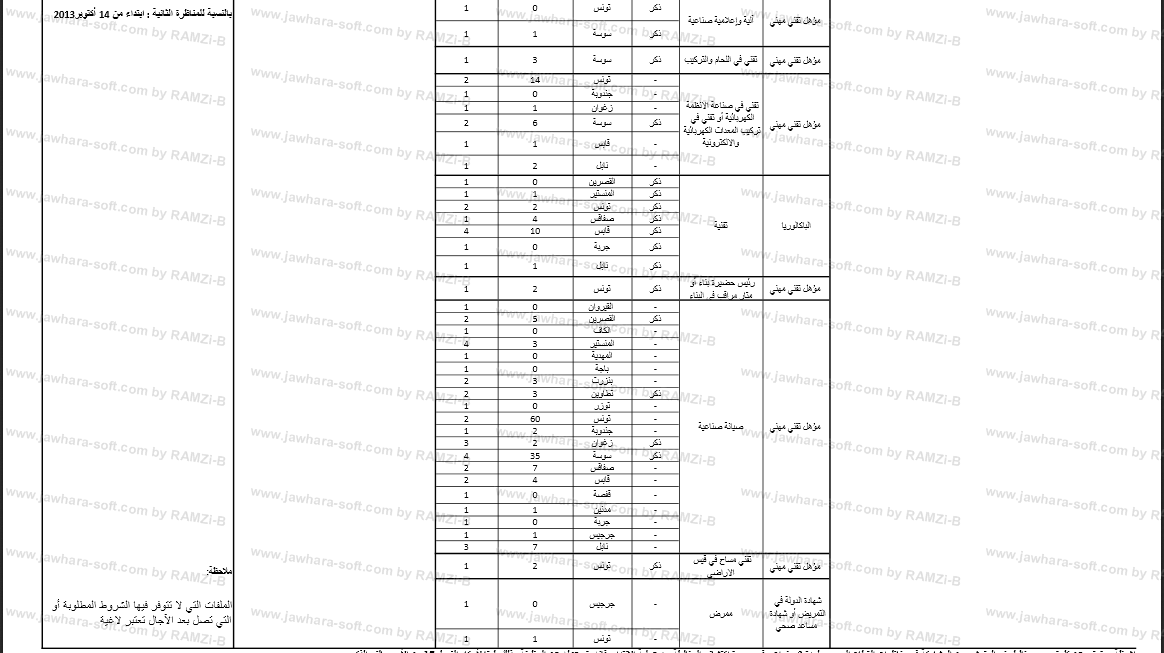 بالنسبة للمناظرة الثانية : ابتداء من 14 أكتوبر2013
مؤهل تقني مهني
آلية وإعلامية صناعية
ذكر تونس 0 1
ذكر سوسة 1 1
مؤهل تقني مهني
تقني في اللحام والتركيب
ذكر سوسة 3 1
مؤهل تقني مهني
تقني في صناعة الانظمة
الكهربائية أو تقني في
تركيب المعدات الكهربائية
والالكترونية
- تونس 14 2
- جندوبة 0 1
- زغوان 1 1
ذكر سوسة 6 2
- قابس 1 1
- نابل 2 1
الباكالوريا
تقنية
ذكر القصرين 0 1
ذكر المنستير 1 1
ذكر تونس 2 2
ذكر صفاقس 4 1
ذكر قابس 10 4
ذكر جربة 0 1
ذكر نابل 1 1
مؤهل تقني مهني
رئيس حضيرة بناء أو
مراقب في البناء
ذكر تونس 2 1
مؤهل تقني مهني
صيانة صناعية
- القيروان 0 1
ذكر القصرين 5 2
- الكاف 0 1
- المنستير 3 4
- المهدية 0 1
- باجة 0 1
- بنزرت 3 2
ذكر تطاوين 3 2
- توزر 0 1
- تونس 60 2
- جندوبة 2 1
ذكر زغوان 2 3
ذكر سوسة 35 4
- صفاقس 7 2
- قابس 4 2
- قفصة 0 1
- مدنين 1 1
- جربة 0 1
- جرجيس 1 1
- نابل 7 3
مؤهل تقني مهني
تقني مساح في قيس
الاراضي
ذكر تونس 2 1
شهادة الدولة في
التمريض أو شهادة
مساعد صحي
ممرض
- جرجيس 0 1
- تونس 1 1
ملاحظة:
الملفات التي لا تتوفر فيها الشروط المطلوبة أو
التي تصل بعد الآجال تعتبر لاغية
www.jawhara-soft.com by RAMZi-B